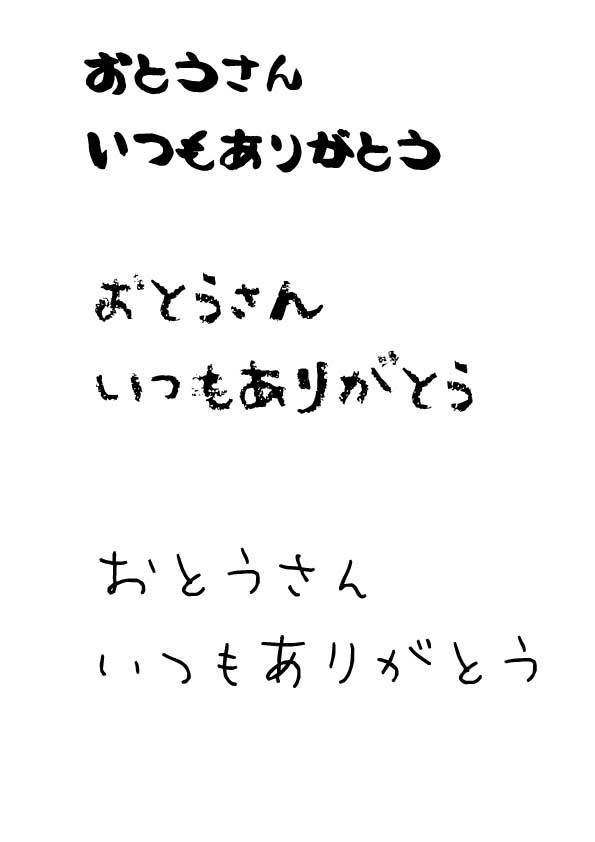 おとうさん
いつもありがとう
おとうさん
いつもありがとう
おとうさん
いつもありがとう